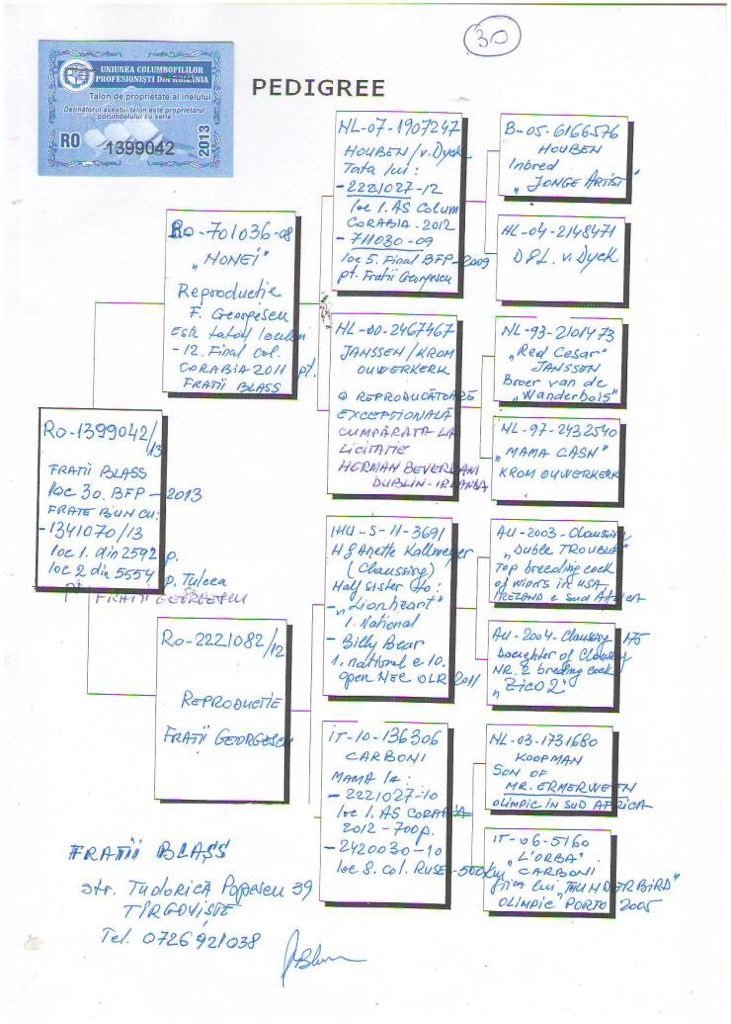 30
UNIUNEA COLUMBOFILILOR
PROFESIONIȘTI DIN ROMÂNIA
Talon de proprietate al inelului
Deținătorul acestui talon este proprietarul
porumbelului cu seria
RO
1399042
2013
PEDIGREE
NL-07-1907247
HOUBEN / v. Dyck
Tata lui:
- 2221027-12
loc 1. AS Colum
CORABIA - 2012
- 711030-09
loc 5. Final BFP-2009
pt. Frații Georgescu
B-05-6166576
HOUBEN
Inbred
"JONGE ARTIST"
NL-04-2148471
D&L. v. Dyck
RO-701036-08
"MONEI"
Reproducție
F. Georgescu
Este tatăl locului
- 12. Final col.
CORABIA 2011 pt.
FRATII BLASS
NL-00-2467467
JANSSEN / KROM
OUWERKERK
O REPRODUCĂTOARE
EXCEPȚIONALĂ
CUMPĂRATĂ LA
LICITATIE
HERMAN BEVERDAM
DUBLIN-IRLANDA
NL-93-2101473
"Red Cesar"
JANSSEN
Broer van de
"Wanderbois"
NL-97-2432540
"MAMA CASH"
KROM OUWERKERK
RO-1399042/13
FRATII BLASS
loc 30. BFP - 2013
FRATE BUN CU:
- 1341070/13
loc 1. din 2592 p.
loc 2 din 5554 p. Tulcea
pt FRATII GEORGESCU
IHU-S-11-3691
H & Anette Kallmeyer
(Claussing)
Half sister to:
- "Lionheart"
1. National
- Billy Bear
1. national e 10.
open NEC OLR 2011
AU-2003-Claussing
"DUBLE TROUBLE"
Top breeding cock
of winers in USA
IRELAND e Sud Africa
AU-2004-Claussing 175
Daughter of Claussing
NR. 2 breding cock
"ZICO 2"
RO-2221082/12
REPRODUCTIE
FRAȚII GEORGESCU
IT-10-136306
CARBONI
MAMA la:
- 2221027-10
loc 1. AS CORABIA
2012 - 700p.
- 2420030-10
loc 8. col. RUSE-500km
NL-03-1731680
KOOPMAN
SON OF
MR. ERMERVEEN
OLIMPIC IN SUD AFRICA
IT-06-5160
"L'ORBA"
CARBONI
fiica lui "THUNDERBIRD"
OLIMPIC PORTO 2005
FRATII BLAȘS
str. Tudorica Popescu 39
TÎRGOVIȘTE
Tel. 0726921038